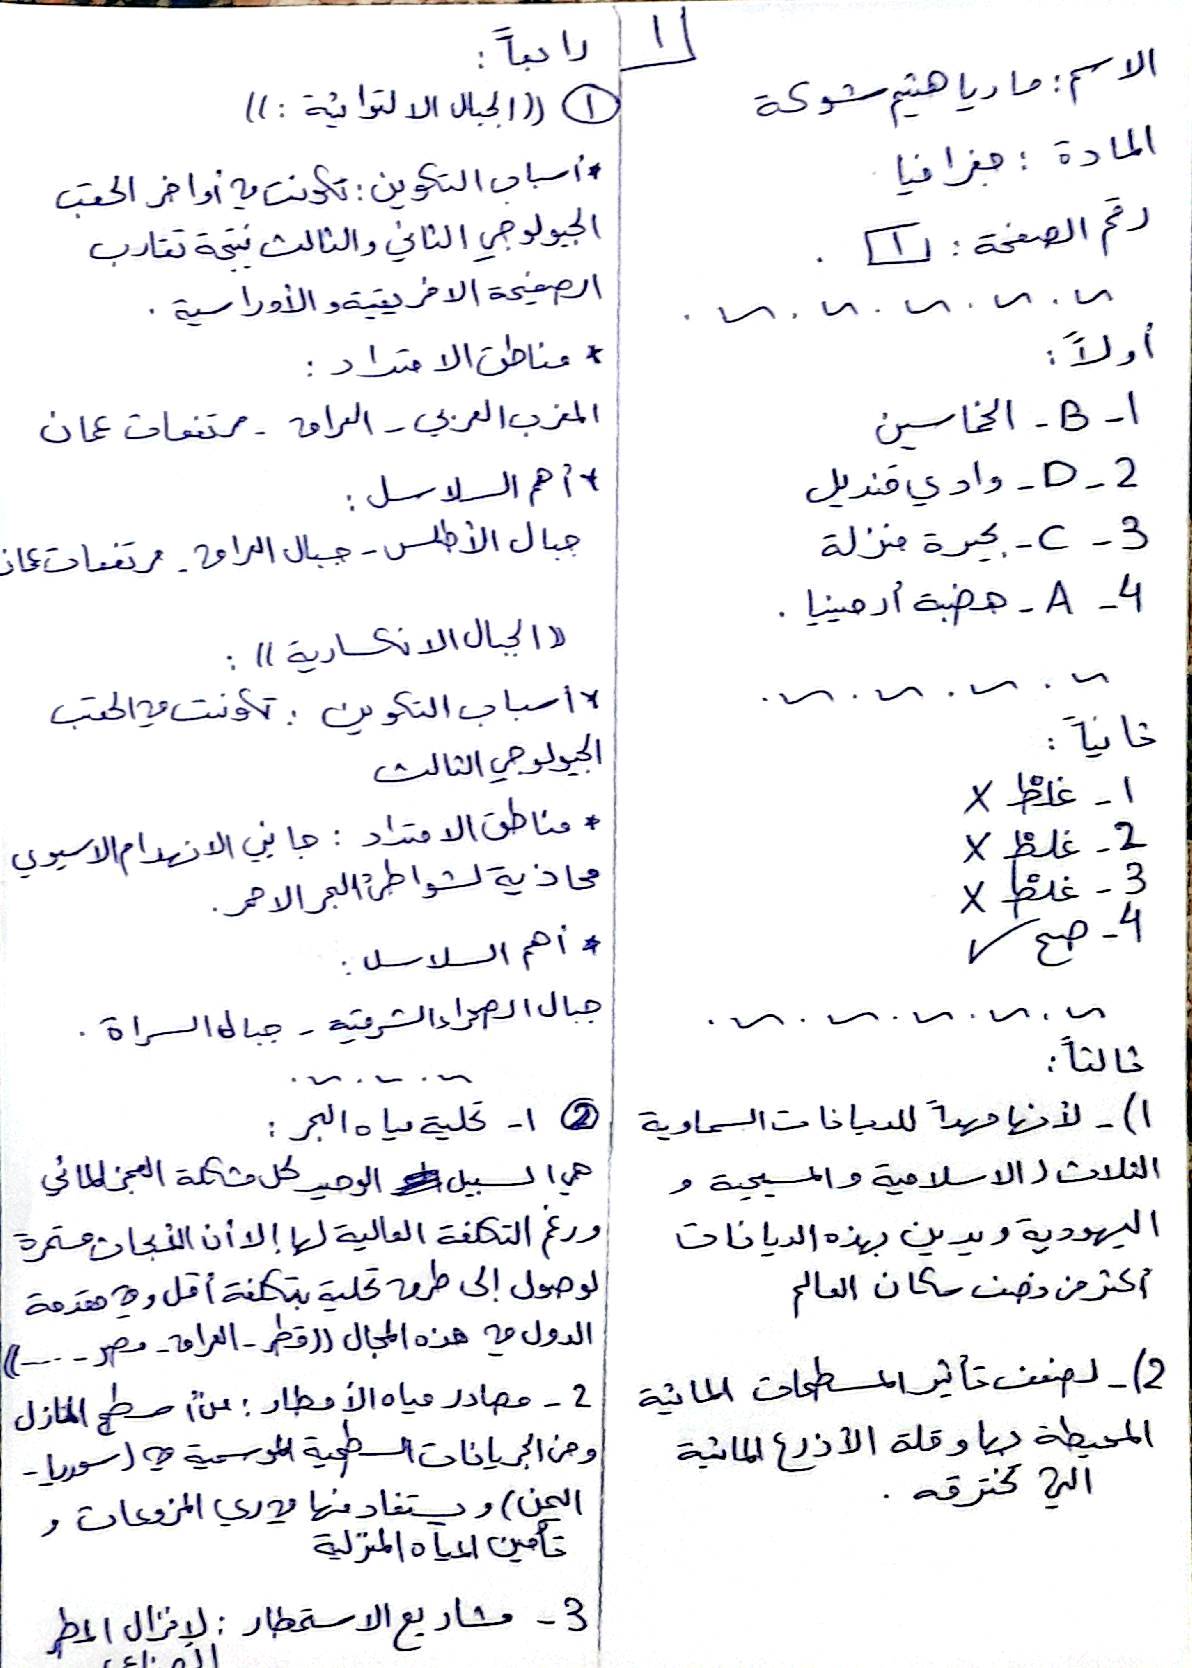 ١
الاسم: ماريا هيثم شوكة
المادة: جغرافيا
رقم الصفحة: ١ .
أولاً:
1- B - الخماسين
2 - D - وادي قنديل
3 - C - بحيرة منزلة
4 - A - هضبة أرمينيا .
ثانياً:
1 - غلط X
2 - غلط X
3 - غلط X
4 - صح ✓
ثالثاً:
1)- لأنها مهداً للديانات السماوية
الثلاث (الاسلامية و المسيحية و
اليهودية ويدين بهذه الديانات
أكثر من نصف سكان العالم
2)- لضعف تأثير المسطحات المائية
المحيطة بها وقلة الأذرع المائية
التي تخترقه .
رابعاً:
① ((الجبال الالتوائية :))
* أسباب التكوين: تكونت في أواخر الحقب
الجيولوجي الثاني والثالث نتيجة تقارب
الصفيحة الافريقية والأوراسية .
* مناطق الامتداد :
المغرب العربي - العراق - مرتفعات عمان
* أهم السلاسل :
جبال الأطلس - جبال العراق - مرتفعات عمان
((الجبال الانكسارية)) :
* أسباب التكوين : تكونت في الحقب
الجيولوجي الثالث
* مناطق الامتداد : جانبي الانهدام الاسيوي
محاذية لشواطئ البحر الاحمر .
* أهم السلاسل :
جبال الصحراء الشرقية - جبال السراة .
② 1- تحلية مياه البحر :
هي السبيل الوحيد لحل مشكلة العجز المائي
ورغم التكلفة العالية لها إلا أن مستمرة
لوصول إلى طرق تحلية بتكلفة أقل وفي مقدمة
الدول في هذه المجال ((قطر - العراق - مصر - ....))
2 - مصادر مياه الأمطار : من أسطح المنازل
ومن الجريانات السطحية الموسمية في (سوريا -
اليمن) و يستفاد منها في ري المزروعات و
تأمين المياه المنزلية
3 - مشاريع الاستمطار : لإنزال المطر
الصناعي